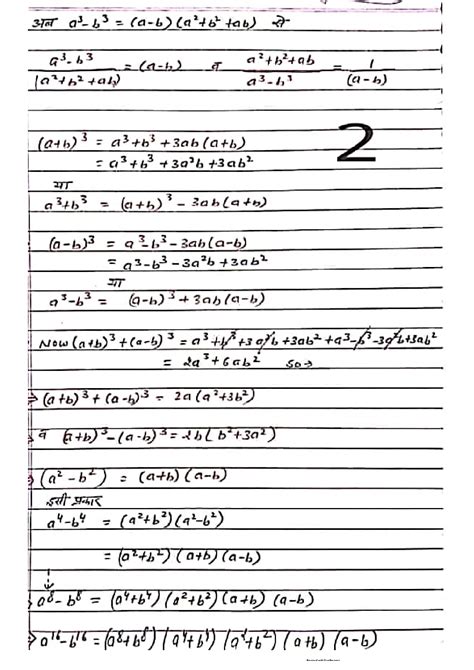 अब a³-b³ = (a-b) (a²+b²+ab) से
a³-b³/(a³+b²+ab) = (a-b) व a²+b²+ab/a³-b³ = 1/(a-b)
2
(a+b)³ = a³+b³+3ab(a+b)
= a³+b³+3a²b+3ab²
या
a³+b³ = (a+b)³-3ab(a+b)
(a-b)³ = a³-b³-3ab(a-b)
= a³-b³-3a²b+3ab²
या
a³-b³ = (a-b)³+3ab(a-b)
Now (a+b)³+(a-b)³ = a³+b³+3a²b+3ab²+a³-b³-3a²b+3ab²
= 2a³+6ab² so→
⇒ (a+b)³+(a-b)³ = 2a(a²+3b²)
व (a+b)³-(a-b)³ = 2b(b²+3a²)
⇒ (a²-b²) = (a+b)(a-b)
इसी प्रकार
a⁴-b⁴ = (a²+b²)(a²-b²)
= (a²+b²)(a+b)(a-b)
⇒ a⁸-b⁸ = (a⁴+b⁴)(a²+b²)(a+b)(a-b)
⇒ a¹⁶-b¹⁶ = (a⁸+b⁸)(a⁴+b⁴)(a²+b²)(a+b)(a-b)